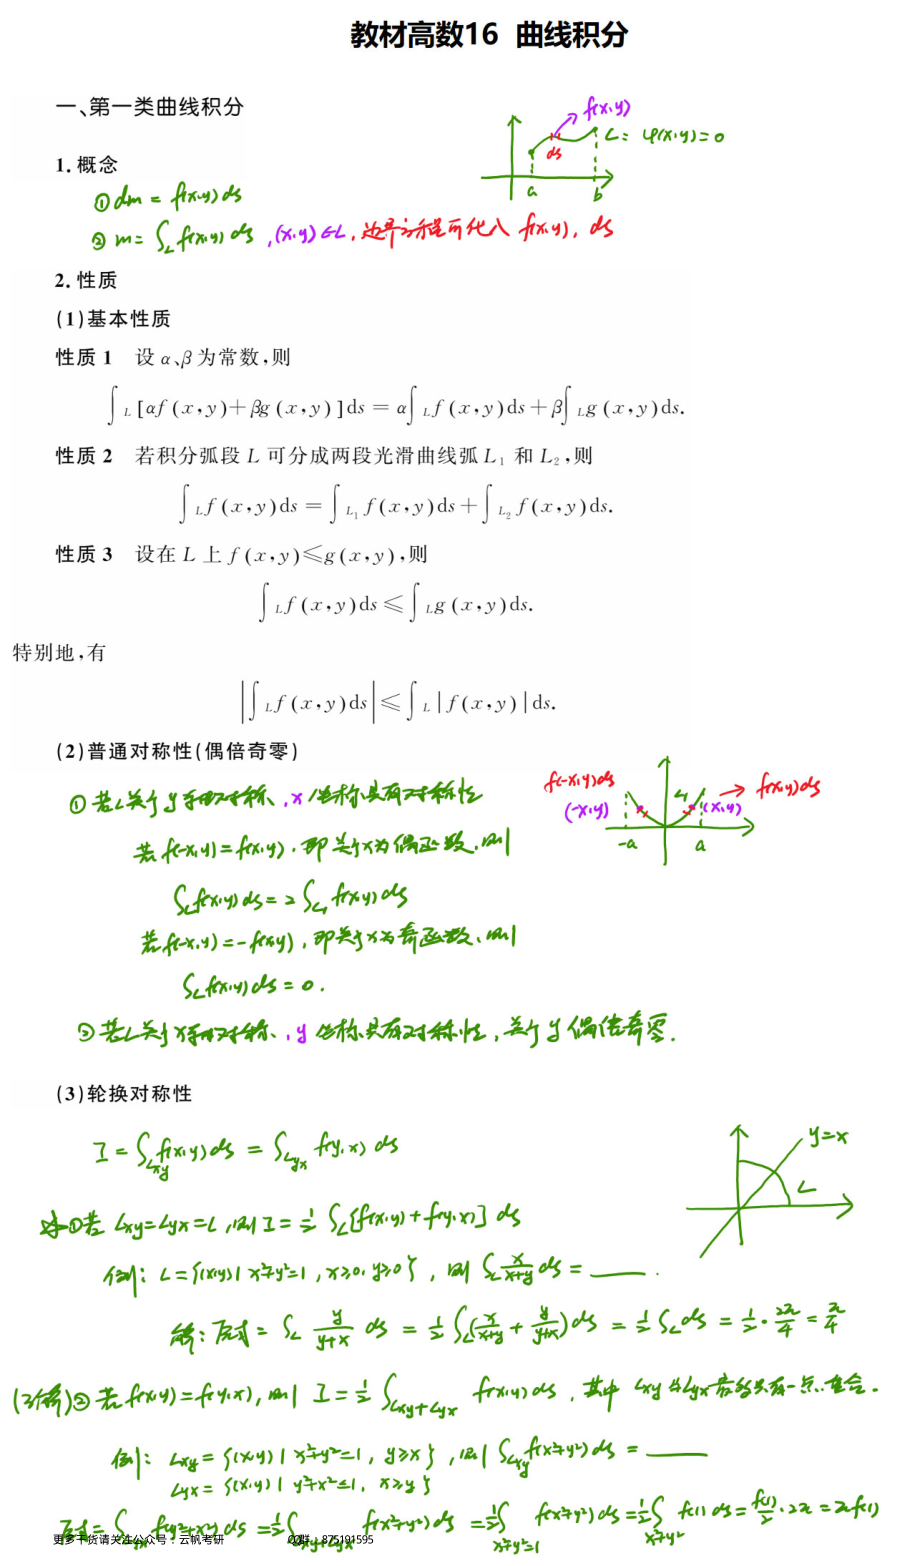 教材高数16 曲线积分
一、第一类曲线积分
f(x,y)
L: φ(x,y)=0
ds
a b
1. 概念
① dm = f(x,y)ds
② m = ∫_L f(x,y) ds ,(x,y)∈L, 边界方程可代入 f(x,y), ds
2. 性质
(1)基本性质
性质 1 设 α、β 为常数,则
∫_L [αf(x,y)+βg(x,y)]ds = α∫_L f(x,y)ds+β∫_L g(x,y)ds.
性质 2 若积分弧段 L 可分成两段光滑曲线弧 L₁ 和 L₂,则
∫_L f(x,y)ds = ∫_L₁ f(x,y)ds+∫_L₂ f(x,y)ds.
性质 3 设在 L 上 f(x,y)≤g(x,y),则
∫_L f(x,y)ds ≤ ∫_L g(x,y)ds.
特别地,有
|∫_L f(x,y)ds| ≤ ∫_L |f(x,y)|ds.
(2)普通对称性(偶倍奇零)
f(-x,y)ds
(-x,y)
L₁
(x,y)
f(x,y)ds
-a a
① 若L关于y轴对称、,x坐标具有对称性
若 f(-x,y)=f(x,y), 即关于x为偶函数,则
∫_L f(x,y)ds = 2∫_L₁ f(x,y)ds
若 f(-x,y)=-f(x,y), 即关于x为奇函数、则
∫_L f(x,y)ds = 0.
② 若L关于x轴对称、,y坐标具有对称性, 关于y偶倍奇零.
(3)轮换对称性
I = ∫_Lxy f(x,y)ds = ∫_Lyx f(y,x) ds
y=x
L
① 若 Lxy=Lyx=L ,则 I = ½ ∫_L [f(x,y)+f(y,x)] ds
例: L={(x,y)| x²+y²=1 , x≥0, y≥0} , 则 ∫_L x/(x+y) ds = ____ .
解: 原式 = ∫_L y/(y+x) ds = ½ ∫_L (x/(x+y) + y/(y+x))ds = ½ ∫_L ds = ½ · 2π/4 = π/4
(了解)② 若 f(x,y)=f(y,x), 则 I = ½ ∫_Lxy+Lyx f(x,y)ds , 其中 Lxy与Lyx 最多只有一点重合.
例: Lxy = {(x,y) | x²+y²=1, y≥x} , 则 ∫_Lxy f(x²+y²) ds = ____
Lyx = {(x,y) | y²+x²=1, x≥y}
原式 = ∫_Lyx f(y²+x²) ds = ½∫_Lxy+Lyx f(x²+y²) ds = ½∫_x²+y²=1 f(x²+y²) ds = ½∫_x²+y² f(1) ds = f(1)/2 · 2π = πf(1)
更多干货请关注公众号：云帆考研 QQ群：875191595